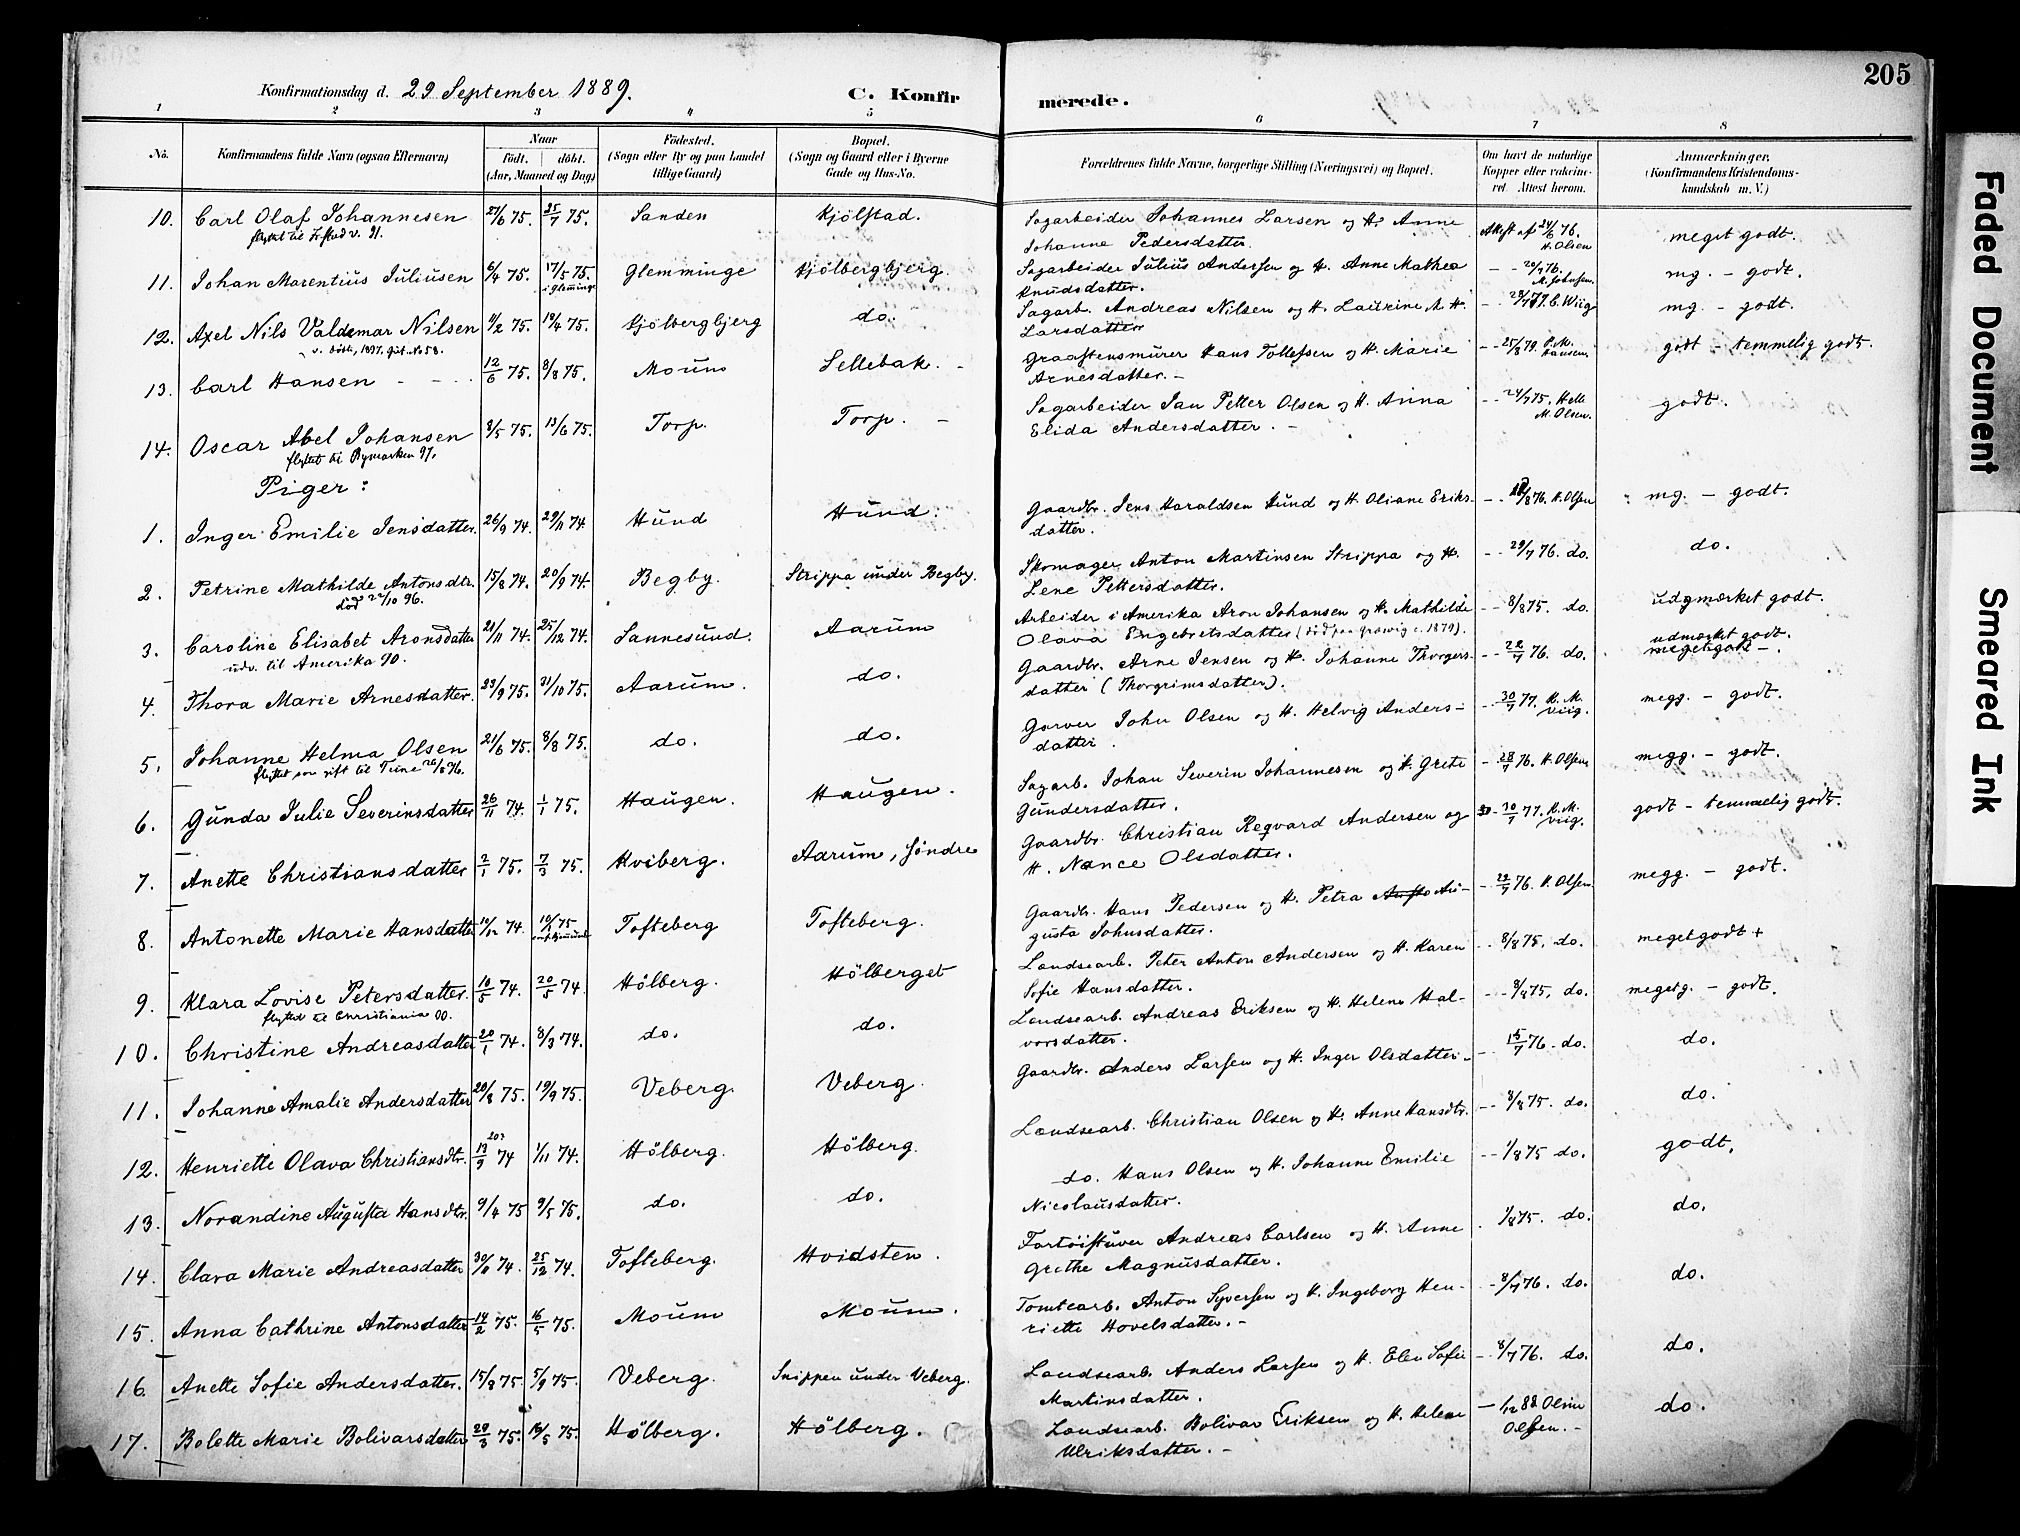 205
Konfirmationsdag d. 29 September 1889.
C. Konfirmerede.
1 2 3 4 5 6 7 8
No. Konfirmandens fulde Navn (ogsaa Efternavn) Naar født. døbt. (Aar, Maaned og Dag) Fødested. (Sogn eller By og paa Landet tillige Gaard) Bopæl. (Sogn og Gaard eller i Byerne Gade og Hus-No. Forældrenes fulde Navne, borgerlige Stilling (Næringsvei) og Bopæl. Om havt de naturlige Kopper eller vakcineret. Attest herom. Anmærkninger. (Konfirmandens Kristendomskundskab m. V.)
10. Carl Olaf Johannesen 27/6 75. 25/7 75. Sanden Kjölstad. Sagarbeider Johannes Larsen og H. Anne Johanne Pedersdatter. Attest af 24/6 76. H. Olsen meget godt.
11. Johan Marentius Juliusen 6/4 75. 17/5 75. i Glemminge Glemminge Kjölbergbjerg. Sagarbeider Julius Andersen og H. Anne Mathea Knudsdatter. - - 20/7 76. M. Johnsen. mg. - godt.
12. Axel Nils Valdemar Nilsen 11/2 75. 19/4 75. Kjölbergbjerg do. Sagarb. Andreas Nilsen og H. Laurine A. H. Larsdatter mg. - godt.
13. Carl Hansen - - - 12/6 75. 8/8 75. Moum Sellebak. - Graastensmurer Hans Tollefsen og H. Marie Arnesdatter. - - - 25/8 79. P. M. Hansen. godt - temmelig godt.
14. Oscar Abel Johansen 8/5 75. 13/6 75. Torp. Torp. - Sagarbeider Jan Petter Olsen og H. Anna Elida Andersdatter. - - - 24/7 75. M. Olsen. godt.
flyttet til Rymarken 97.
Piger:
1. Inger Emilie Jensdatter. 26/9 74. 29/11 74 Hund Hund. Gaardbr. Jens Haraldsen Hund og H. Oliane Eriksdatter. 76. H. Olsen mg. - godt.
2. Petrine Mathilde Antonsdtr. 15/8 74. 20/9 74. Begby. Strippa under Begby. Skomager Anton Martinsen Strippa og H. Lene Pettersdatter. - - 29/7 76. do. do.
död 22/10 96.
3. Caroline Elisabet Aronsdatter 21/11 74. 25/12 74. Sannesund. Aarum Arbeider i Amerika Aron Johansen og H. Mathilde Olava Engebretsdatter - - 8/8 75. do. udmærket godt.
udv. til Amerika 90.
4. Thora Marie Arnesdatter. 23/9 75. 31/10 75. Aarum. do. Gaardbr. Arne Jensen og H. Johanne Thorgersdatter (Thorgrimsdatter). - - 22/7 76. do. udmærket godt. megetgodt -.
5. Johanne Helma Olsen 21/6 75. 8/8 75. do. do. Garver John Olsen og H. Helvig Andersdatter. - - 30/7 77. K. M. Viig. megg. - godt.
flyttet som gift til Tune 26/8 96.
6. Gunda Julie Severinsdatter 26/11 74. 1/1 75. Haugen. Haugen. Sagarb. Johan Severin Johannesen og H. Grete Gundersdatter. - 28/7 76. H. Olsen megg. - godt.
7. Anette Christiansdatter 2/1 75. 7/3 75. Hviberg. Aarum, söndre Gaardbr. Christian Regvard Andersen og H. Nance Olsdatter. 30/7 77. K. M. Viig. godt - temmelig godt.
8. Antonette Marie Hansdatter 10/12 74. 75 Tofteberg Tofteberg. Gaardbr. Hans Pedersen og H. Petra Augusta Johnsdatter. - 22/7 76. H. Olsen. megg. - godt.
9. Klara Lovise Petersdatter. 10/5 74. 20/5 74. Hölberg. Hölberget Landsearb. Peter Anton Andersen og H. Karen Sofie Hansdatter. - - 8/8 75. do. megetgodt +
flyttet til Christiania 00.
10. Christine Andreasdatter 20/1 74. 8/3 74. do. do. Landsearb. Andreas Eriksen og H. Helene Halvorsdatter. - - 8/8 75. do. megetg. - godt.
11. Johanne Amalie Andersdatter 20/8 75. 19/9 75. Veberg. Veberg. Gaardbr. Anders Larsen og H. Inger Olsdatter. - 15/7 76. do. do.
12. Henriette Olava Christiansdtr. 13/9 74 1/11 74. Hölberg. Hölberg. Landsearb. Christian Olsen og H. Anne Hansdtr. - - 8/8 75. do. do.
13. Norandine Augusta Hansdtr. 9/4 75 9/5 75. do. do. do. Hans Olsen og H. Johanne Emilie Nicolausdatter. - - 1/8 75 do. godt.
14. Clara Marie Andreasdatter 30/11 74. 25/12 74. Tofteberg. Hvidsten. Fartöistuver Andreas Carlsen og H. Anne Grethe Magnusdatter. 1/8 75. do. do.
15. Anna Cathrine Antonsdatter 14/2 75. 16/5 75. Moum Moum. Tomtearb. Anton Syversen og H. Ingeborg Henriette Hovelsdatter. - - 8/7 76. do. do.
16. Anette Sofie Andersdatter. 15/8 75 5/9 75. Veberg. Snippen under Veberg. Landsearb. Anders Larsen og H. Elen Sofie Martinsdatter. - 8/7 76. do. do.
17. Bolette Marie Bolivarsdatter 29/3 75. 16/5 75. Hölberg. Hölberg. Landsearb. Bolivar Eriksen og H. Helene Ulriksdatter. - - 1/12 82 Oline Olsen. - do.
Faded Document
Smeared Ink